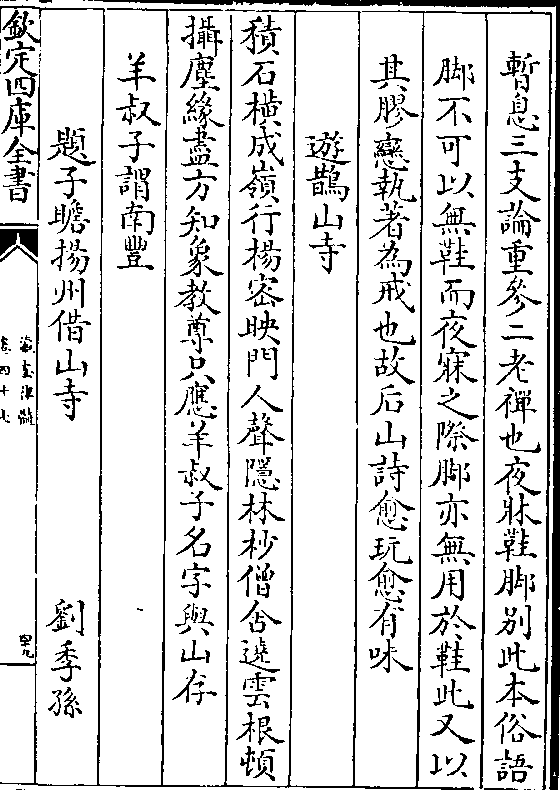 暫息三支論重參二老禪也夜牀鞋脚别此本俗語
脚不可以無鞋而夜寐之際脚亦無用於鞋此又以
其膠戀執著為戒也故后山詩愈玩愈有味
遊鵲山寺
積石横成嶺行楊密映門人聲隱林杪僧舍遶雲根頓
攝塵緣盡方知象教尊只應羊叔子名字與山存
羊叔子謂南豐
題子瞻揚州借山寺 劉季孫
欽定四庫全書
卷四十七